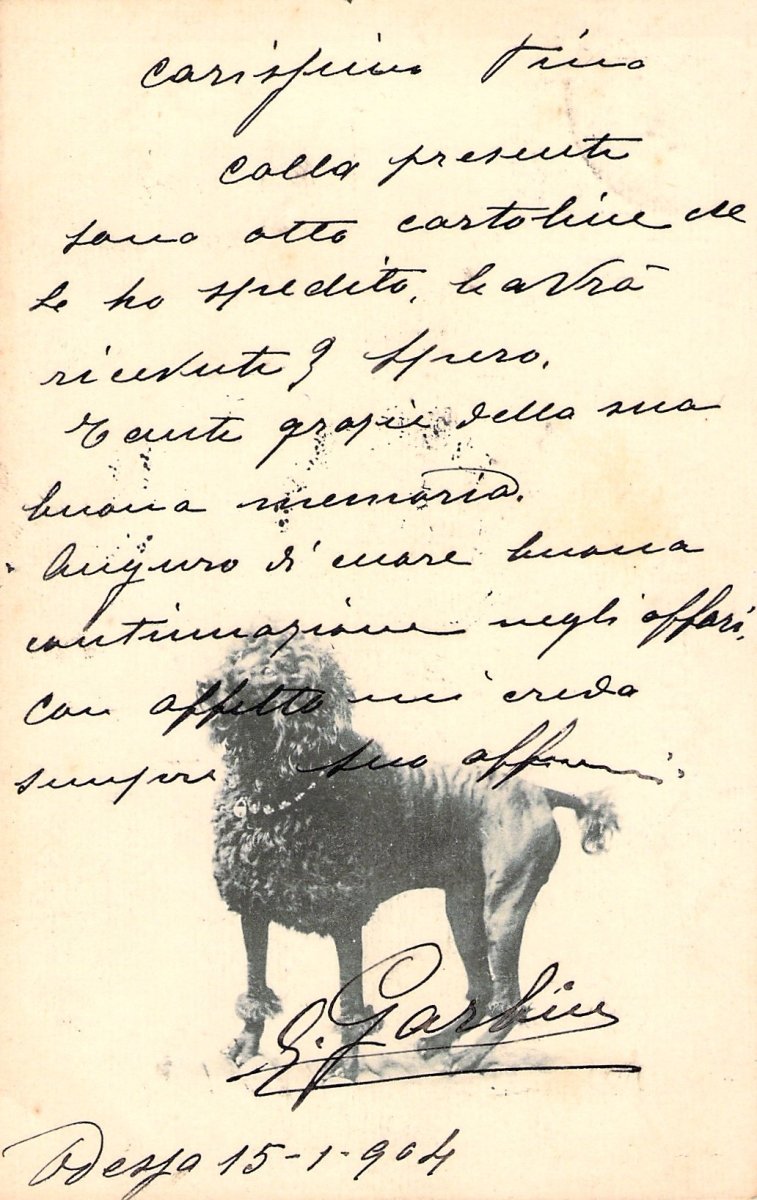 Carissimo Tino
Colla presente
sono otto cartoline che
Le ho spedito, le avrà
ricevute? Spero.
Tante grazie della sua
buona memoria.
Auguro di cuore buona
continuazione negli affari,
con affetto mi creda
sempre suo affmo.
G. Garbin
Odessa 15-1-904